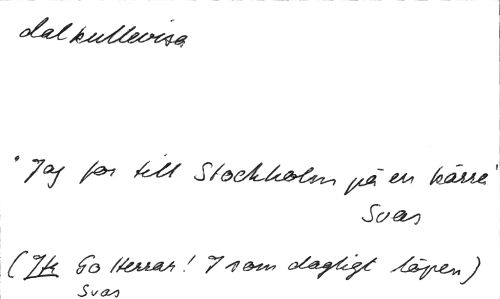 dalkullevisa
"Jag for till Stockholm på en kärra"
Svas
(Jfr Go Herrar! I som dagligt löpen)
Svas